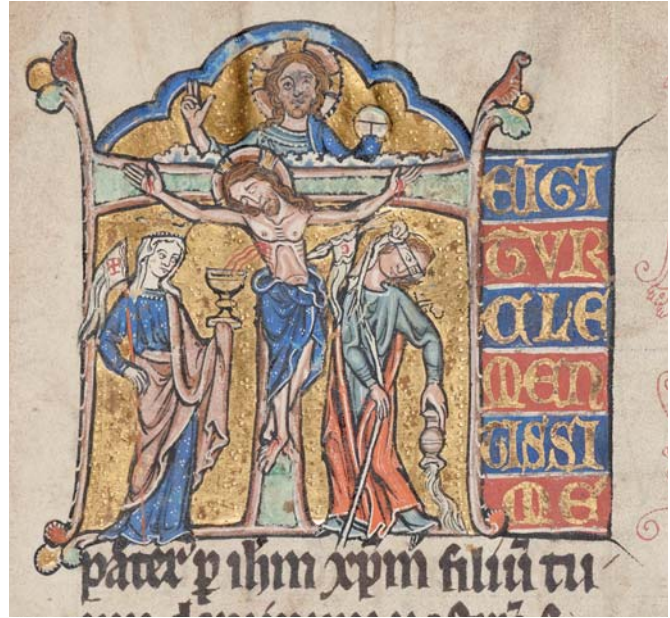 EIGI
TVR
CLE
MEN
TISSI
ME
pater p ihm xpm filiu tu